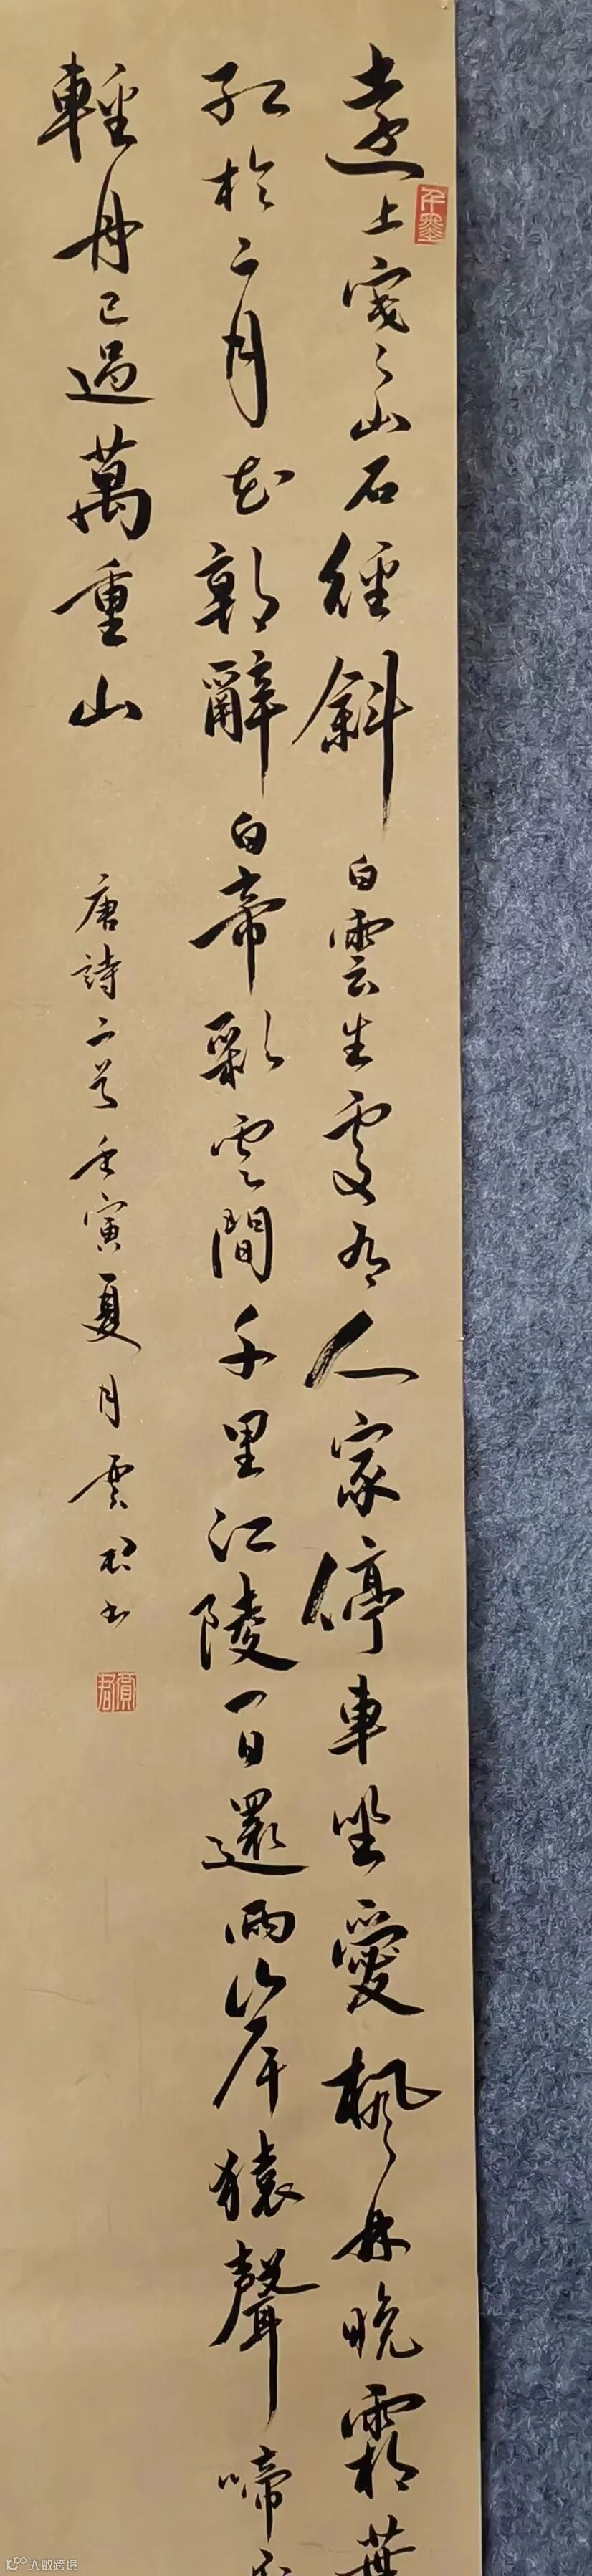 遠上寒々山石徑斜白雲生處有人家停車坐愛楓林晚霜葉
紅於二月花朝辭白帝彩雲間千里江陵一日還兩岸猿聲啼不
輕舟已過萬重山
唐詩二首壬寅夏月雲松书
大数跨境